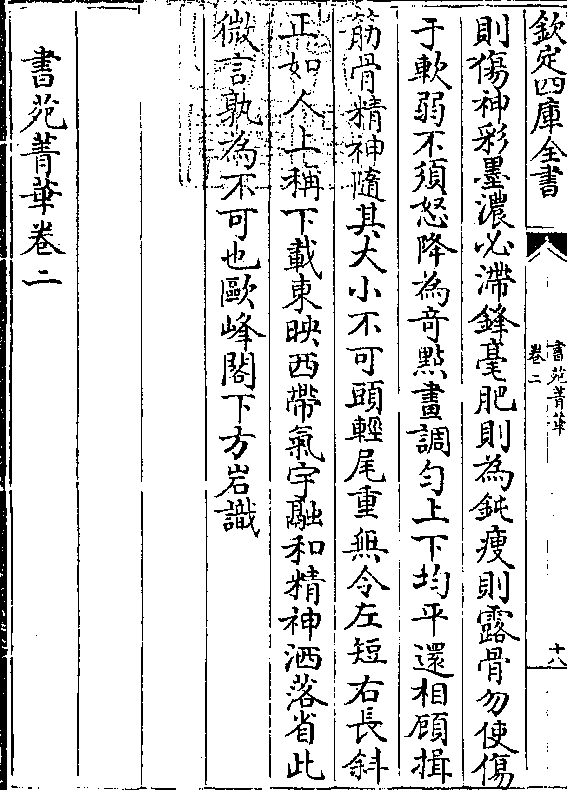 欽定四庫全書
書苑菁華
卷二
十八
則傷神彩墨濃必滯鋒毫肥則為鈍瘦則露骨勿使傷
于軟弱不須怒降為奇點畫調勻上下均平還相顧揖
筋骨精神隨其大小不可頭輕尾重無令左短右長斜
正如人上稱下載東映西帶氣宇融和精神洒落省此
微言孰為不可也歐峰閣下方岩識
書苑菁華卷二